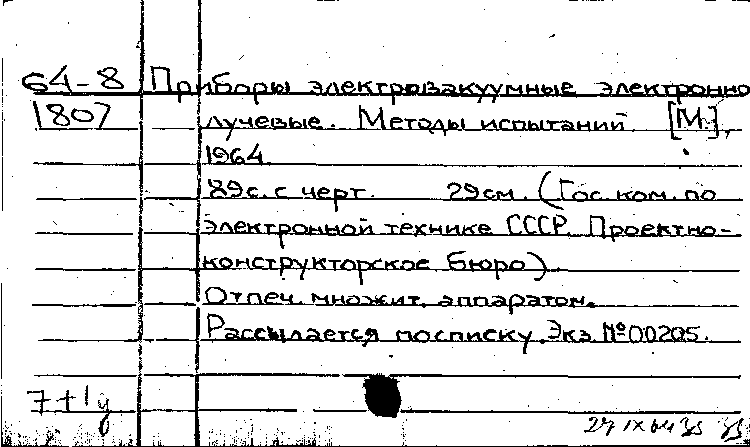 64-8 Приборы электровакуумные электронно
1807 лучевые. Методы испытаний. [М.],
1964.
89с. с черт. 29см. (Гос. ком. по
электронной технике СССР. Проектно-
конструкторское бюро).
Отпеч. множит. аппаратом.
Рассылается по списку. Экз. №00205.
7+1